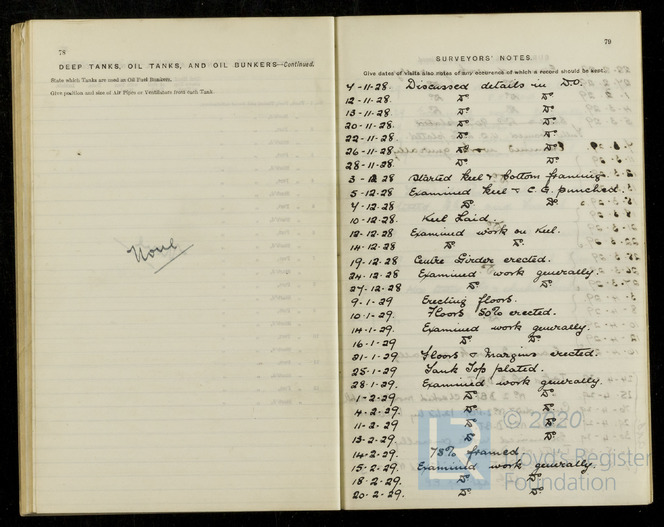 78
DEEP TANKS, OIL TANKS, AND OIL BUNKERS—Continued.
State which Tanks are used as Oil Fuel Bunkers.
Give position and size of Air Pipes or Ventilators from each Tank.
None
79
SURVEYORS' NOTES.
Give dates of visits also notes of any occurence of which a record should be kept.
4-11-28. Discussed details in D.O.
12-11-28. Do Do
13-11-28. Do Do
20-11-28. Do Do
22-11-28. Do Do
26-11-28. Do Do
28-11-28. Do Do
3-12-28 Started keel & bottom framing.
5-12-28 Examined keel & C.G. punched.
7-12-28 Do Do
10-12-28. Keel Laid.
12-12-28 Examined work on keel.
14-12-28 Do Do
19-12-28 Centre Girder erected.
24-12-28 Examined work generally.
27-12-28 Do Do
9-1-29 Erecting floors.
10-1-29. Floors 50% erected.
14-1-29. Examined work generally.
16-1-29 Do Do
21-1-29 Floors & Margins erected.
25-1-29 Tank Top plated.
28-1-29. Examined work generally.
1-2-29. Do Do
4-2-29. Do Do
11-2-29 Do Do
13-2-29. Do Do
14-2-29. 75% framed
15-2-29. Examined work generally.
18-2-29. Do Do
20-2-29. Do Do
LR © 2020
Lloyd's Register
Foundation